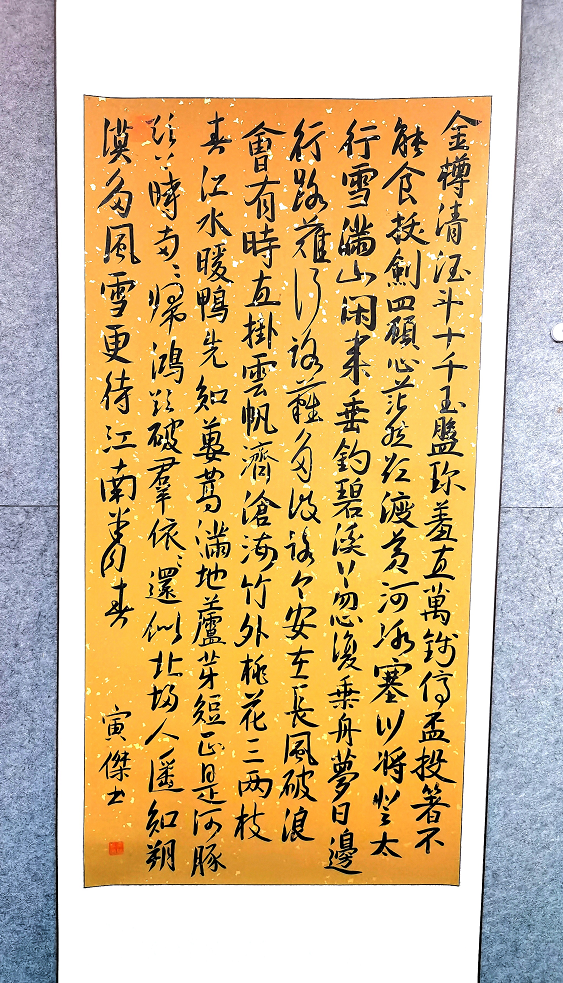 金樽清酒斗十千玉盤珍羞直萬錢停盃投箸不
能食拔劍四顧心茫然欲渡黃河冰塞川將登太
行雪滿山閑來垂釣碧溪上忽復乘舟夢日邊
行路難行路難多歧路今安在長風破浪
會有時直掛雲帆濟滄海竹外桃花三两枝
春江水暖鴨先知蔞蒿滿地蘆芽短正是河豚
欲上時两々歸鴻欲破羣依々還似北歸人遙知朔
漠多風雪更待江南半月春
寅傑书